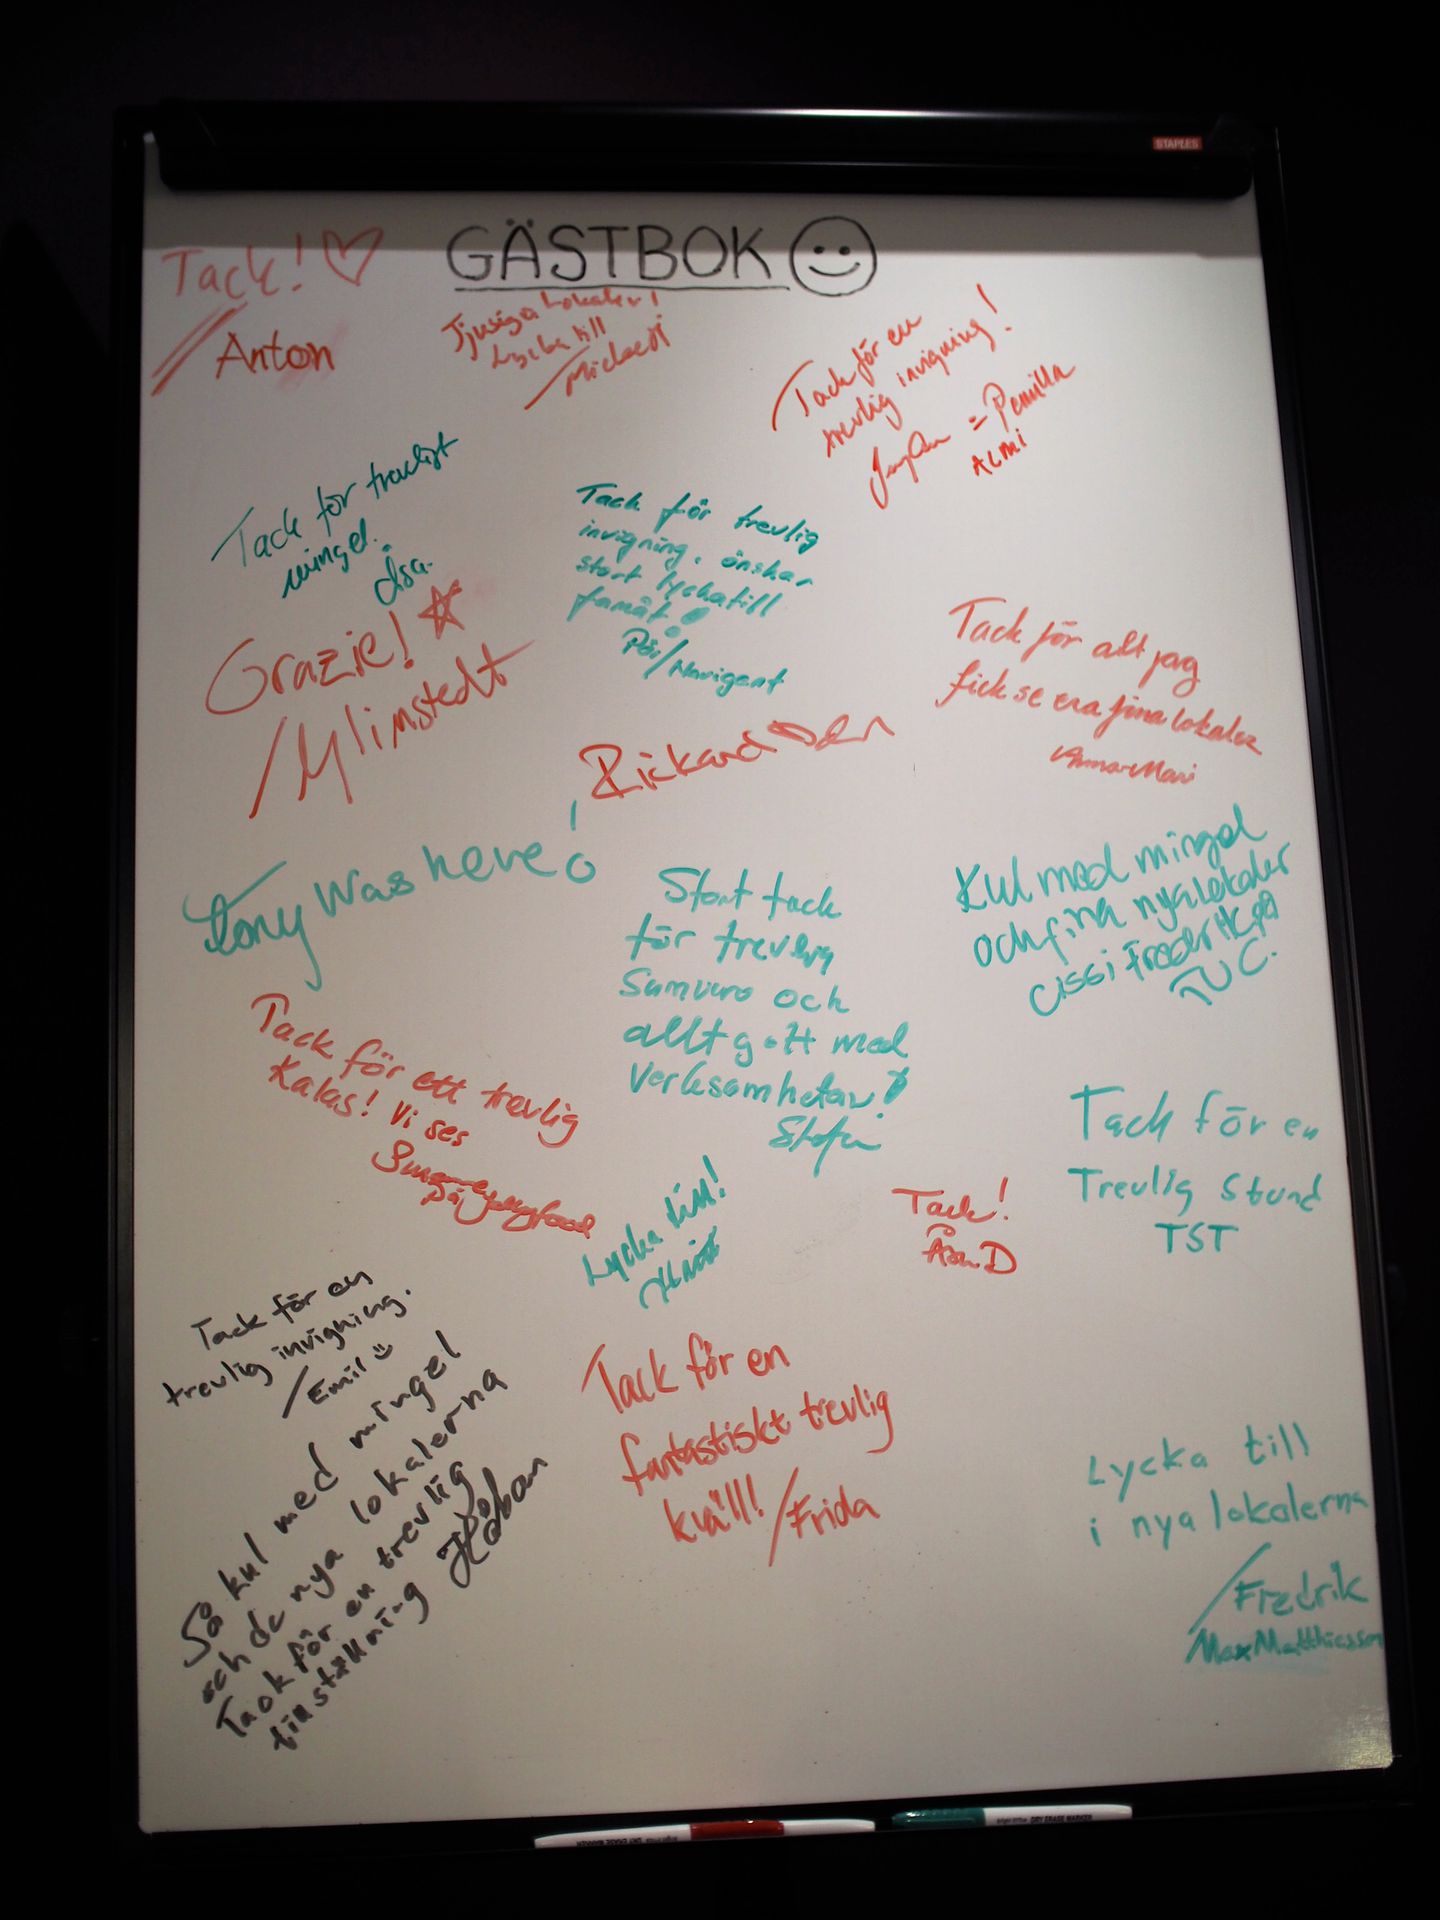 STAPLES
GÄSTBOK
Tack!
Anton
Tjusiga Lokaler!
Lycka till
/Michael
Tack för en
trevlig invigning!
= Pernilla
ALMI
Tack för trevligt
mingel.
Åsa.
Tack för trevlig
invigning. önskar
stort lycka till
framåt!
Pär/Navigent
Grazie!
/Mlimstedt
Tack för att jag
fick se era fina lokaler
Anna-Mari
Rickard
Tony was here!
Stort tack
för trevlig
Samvaro och
allt gott med
Verksamheten!
Stefan
Kul med mingel
och fina nya lokaler
Cissi Fredrik på
TUC.
Tack för ett trevlig
Kalas! Vi ses
på
Lycka till!
Tack!
Tack för en
Trevlig Stund
TST
Tack för en
trevlig invigning.
/Emil
Så kul med mingel
och de nya lokalerna
Tack för en trevlig
tillställning Håkan
Tack för en
fantastiskt trevlig
kväll! /Frida
Lycka till
i nya lokalerna
/Fredrik
MaxMatthiessen
DRY ERASE MARKER
DRY ERASE MARKER